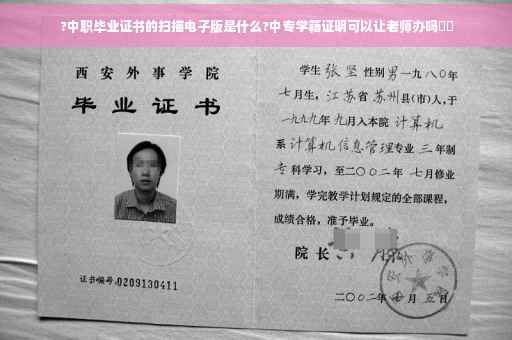 ?中职毕业证书的扫描电子版是什么?中专学籍证明可以让老师办吗
西安外事学院
毕业证书
证书编号:0209130411
学生 张坚 性别 男 一九八〇年
七月生, 江苏省 苏州县(市)人,于
一九九九年 九月入本院 计算机
系 计算机信息管理专业 三 年制
专 科学习, 至二〇〇二年 七月修业
期满, 学完教学计划规定的全部课程,
成绩合格, 准予毕业。
院长
二〇〇二年 月五日